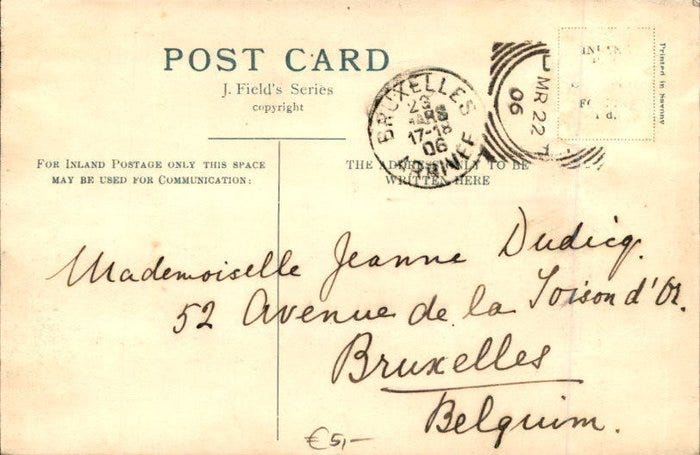 POST CARD
J. Field's Series
copyright
FOR INLAND POSTAGE ONLY THIS SPACE
MAY BE USED FOR COMMUNICATION:
THE ADDRESS ONLY TO BE
WRITTEN HERE
BRUXELLES
23
MARS
17-18
06
ARRIVEE
MR 22
06
Printed in Saxony
Mademoiselle Jeanne Dudicq.
52 Avenue de la Toison d'Or.
Bruxelles
Belguim.
€5,-